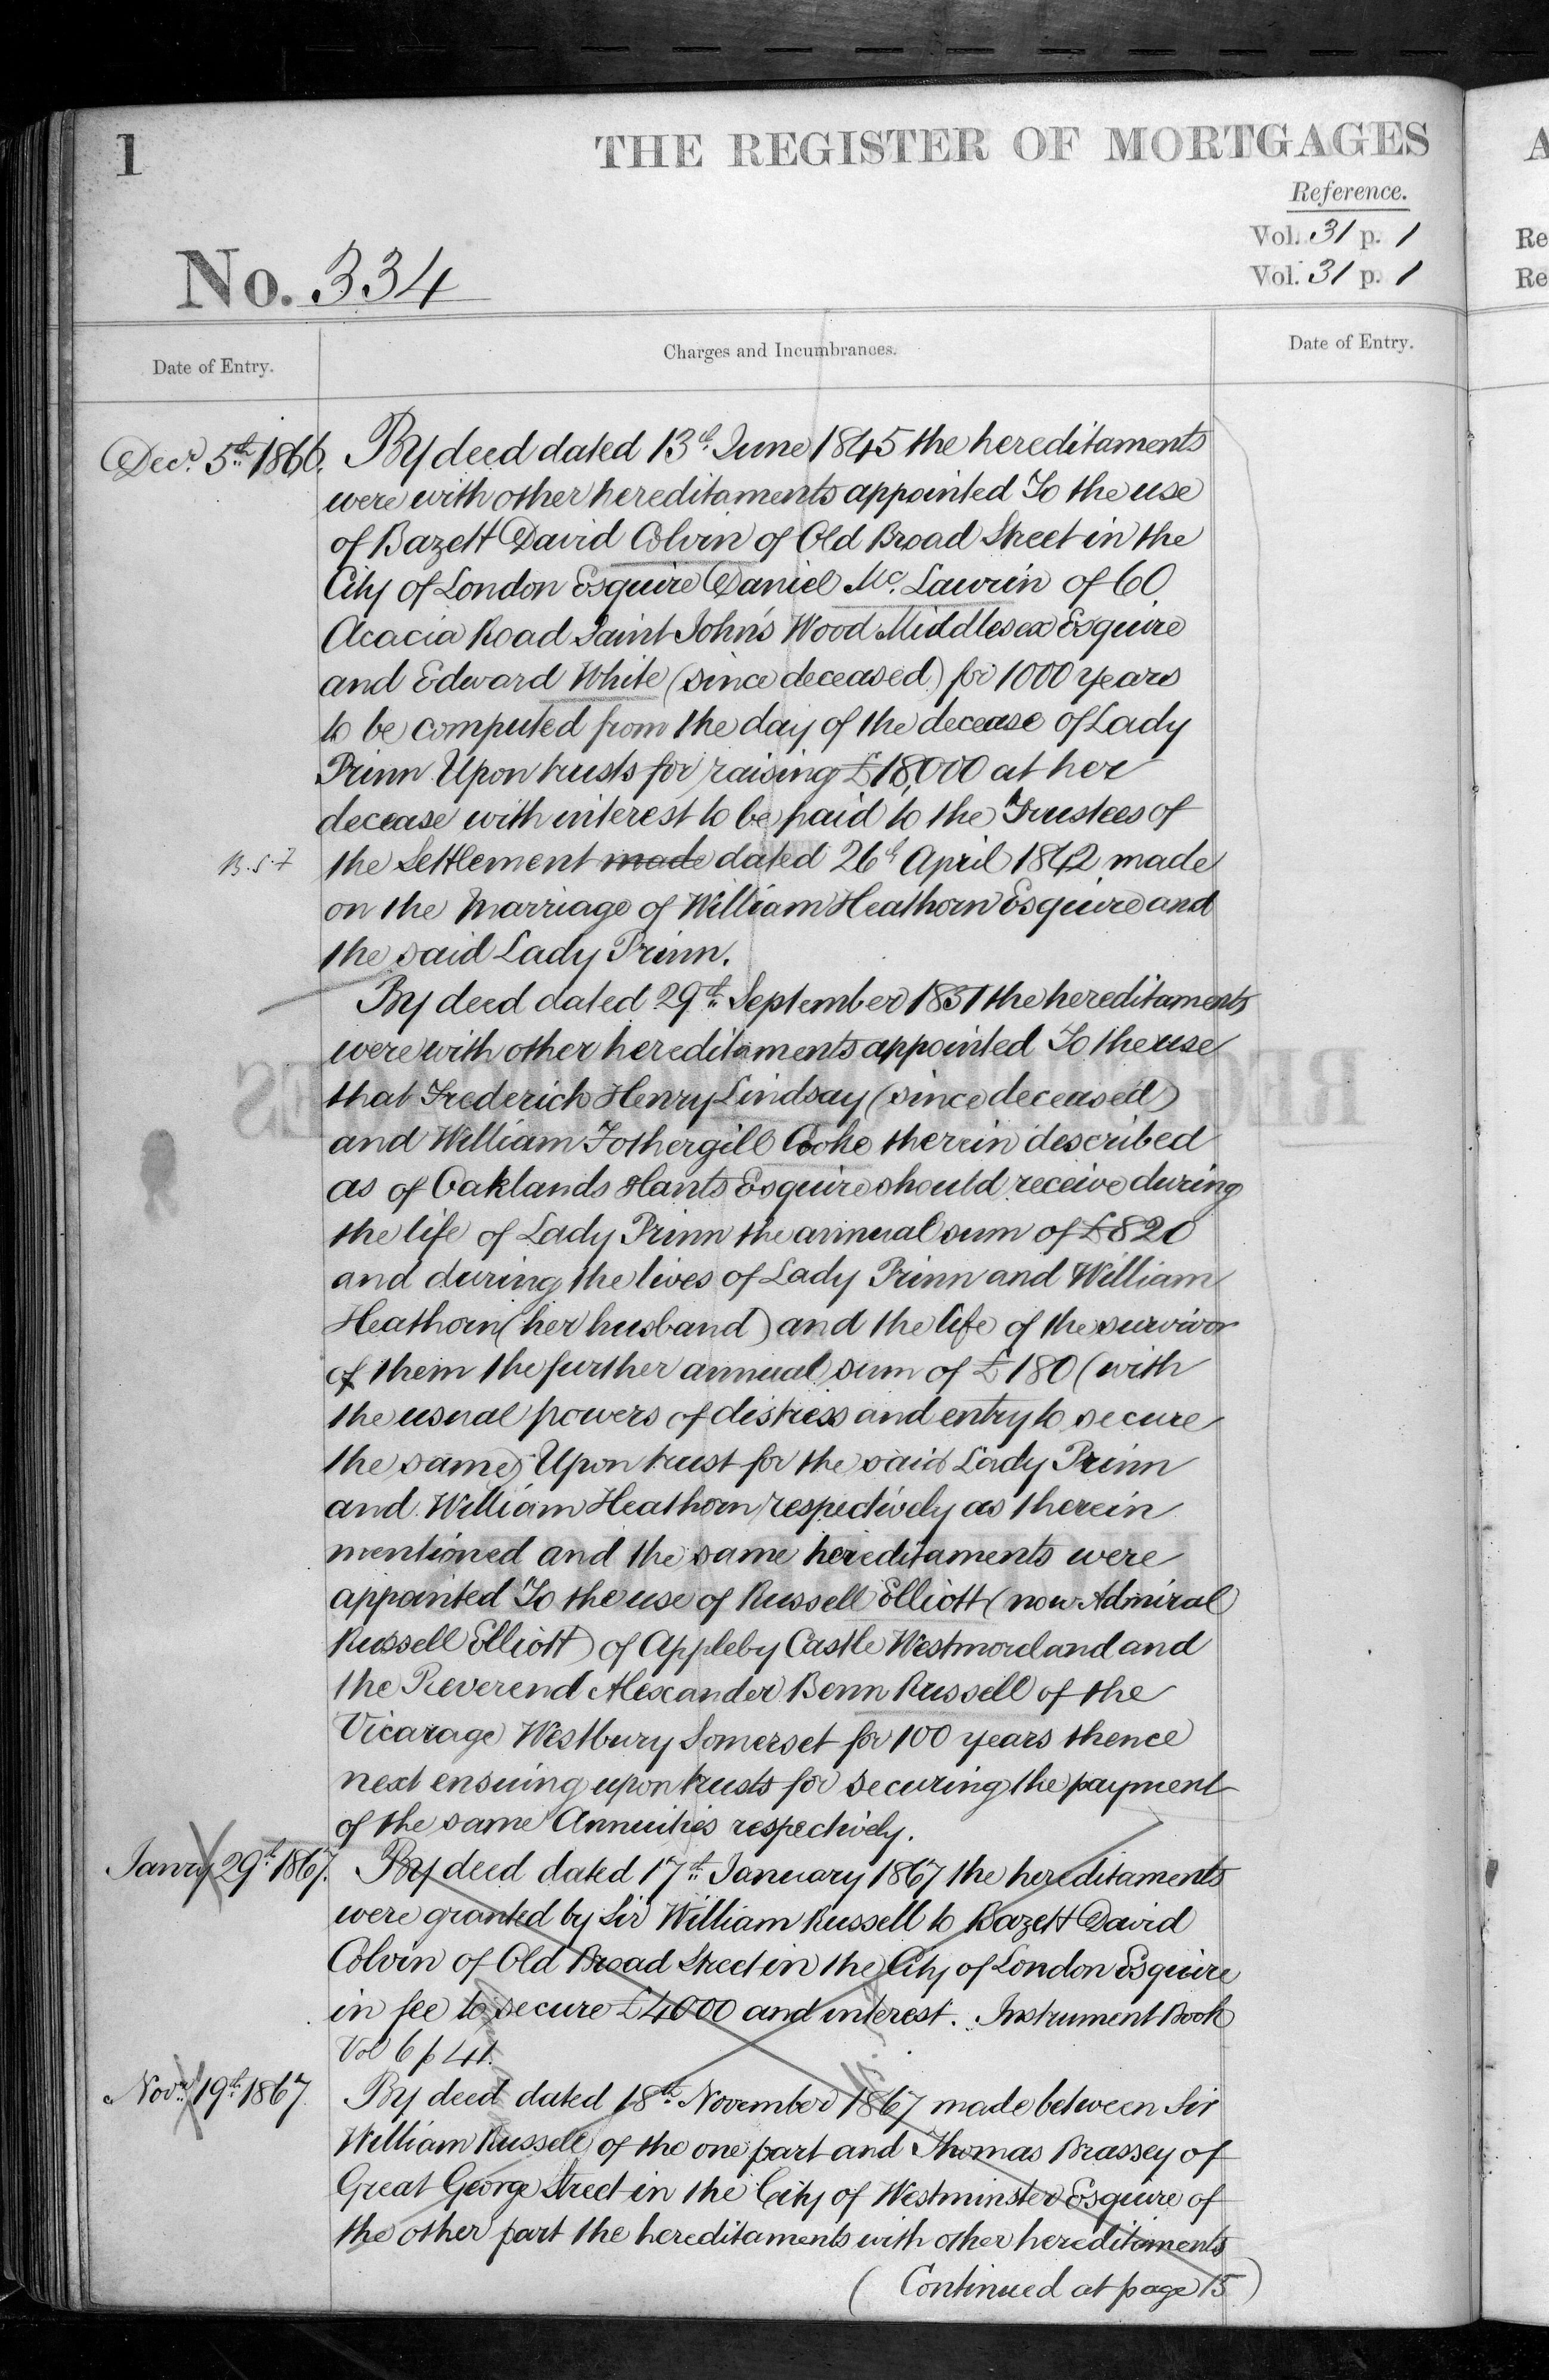 1
THE REGISTER OF MORTGAGES
Reference.
Vol. 31 p. 1
Vol. 31 p. 1
No. 334
Date of Entry.
Charges and Incumbrances.
Date of Entry.
Decr. 5th 1866.
By deed dated 13th June 1845 the hereditaments
were with other hereditaments appointed To the use
of Bazett David Colvin of Old Broad Street in the
City of London Esquire Daniel Mc. Laurin of 60
Acacia Road Saint John's Wood Middlesex Esquire
and Edward White (since deceased) for 1000 years
to be computed from the day of the decease of Lady
Prinn Upon trusts for raising £18,000 at her
decease with interest to be paid to the Trustees of
the Settlement made dated 26th April 1842 made
on the Marriage of William Heathorn Esquire and
the said Lady Prinn.
By deed dated 29th September 1851 the hereditaments
were with other hereditaments appointed To the use
that Frederick Henry Lindsay (since deceased)
and William Fothergill Cooke therein described
as of Oaklands Hants Esquire should receive during
the life of Lady Prinn the annual sum of £820
and during the lives of Lady Prinn and William
Heathorn (her husband) and the life of the survivor
of them the further annual sum of £180 (with
the usual powers of distress and entry to secure
the same) Upon trust for the said Lady Prinn
and William Heathorn respectively as therein
mentioned and the same hereditaments were
appointed To the use of Russell Elliott (now Admiral
Russell Elliott) of Appleby Castle Westmoreland and
the Reverend Alexander Benn Russell of the
Vicarage Westbury Somerset for 100 years thence
next ensuing upon trusts for securing the payment
of the same Annuities respectively.
Janry 29th 1867.
By deed dated 17th January 1867 the hereditaments
were granted by Sir William Russell to Bazett David
Colvin of Old Broad Street in the City of London Esquire
in fee to secure £4000 and interest. Instrument Book
Vol 6 p 41.
Novr. 19th 1867
By deed dated 18th November 1867 made between Sir
William Russell of the one part and Thomas Brassey of
Great George Street in the City of Westminster Esquire of
the other part the hereditaments with other hereditaments
(Continued at page 15)
A
Re
Re